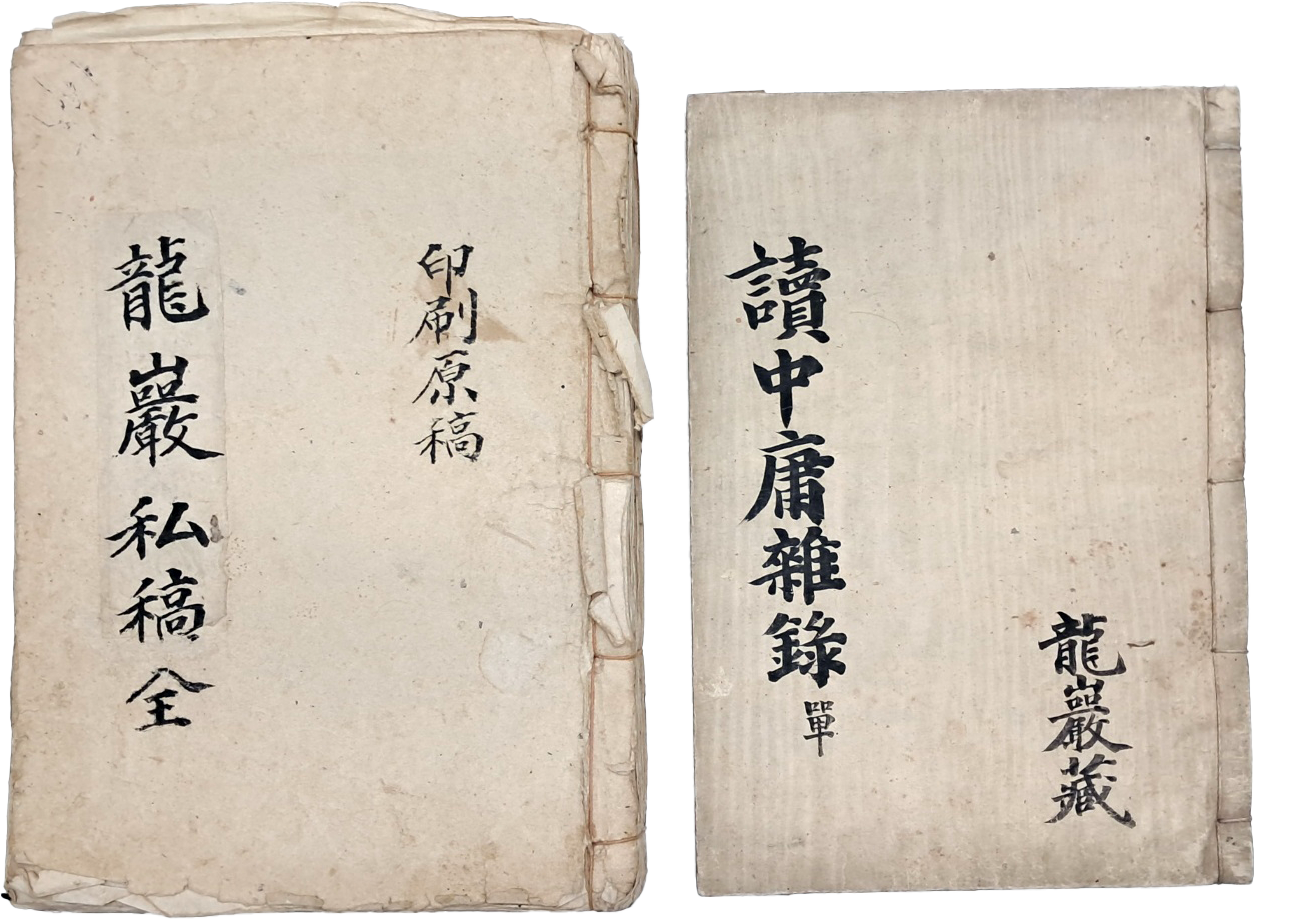 印刷原稿
龍巖私稿 全
龍巖藏
讀中庸雜錄 單